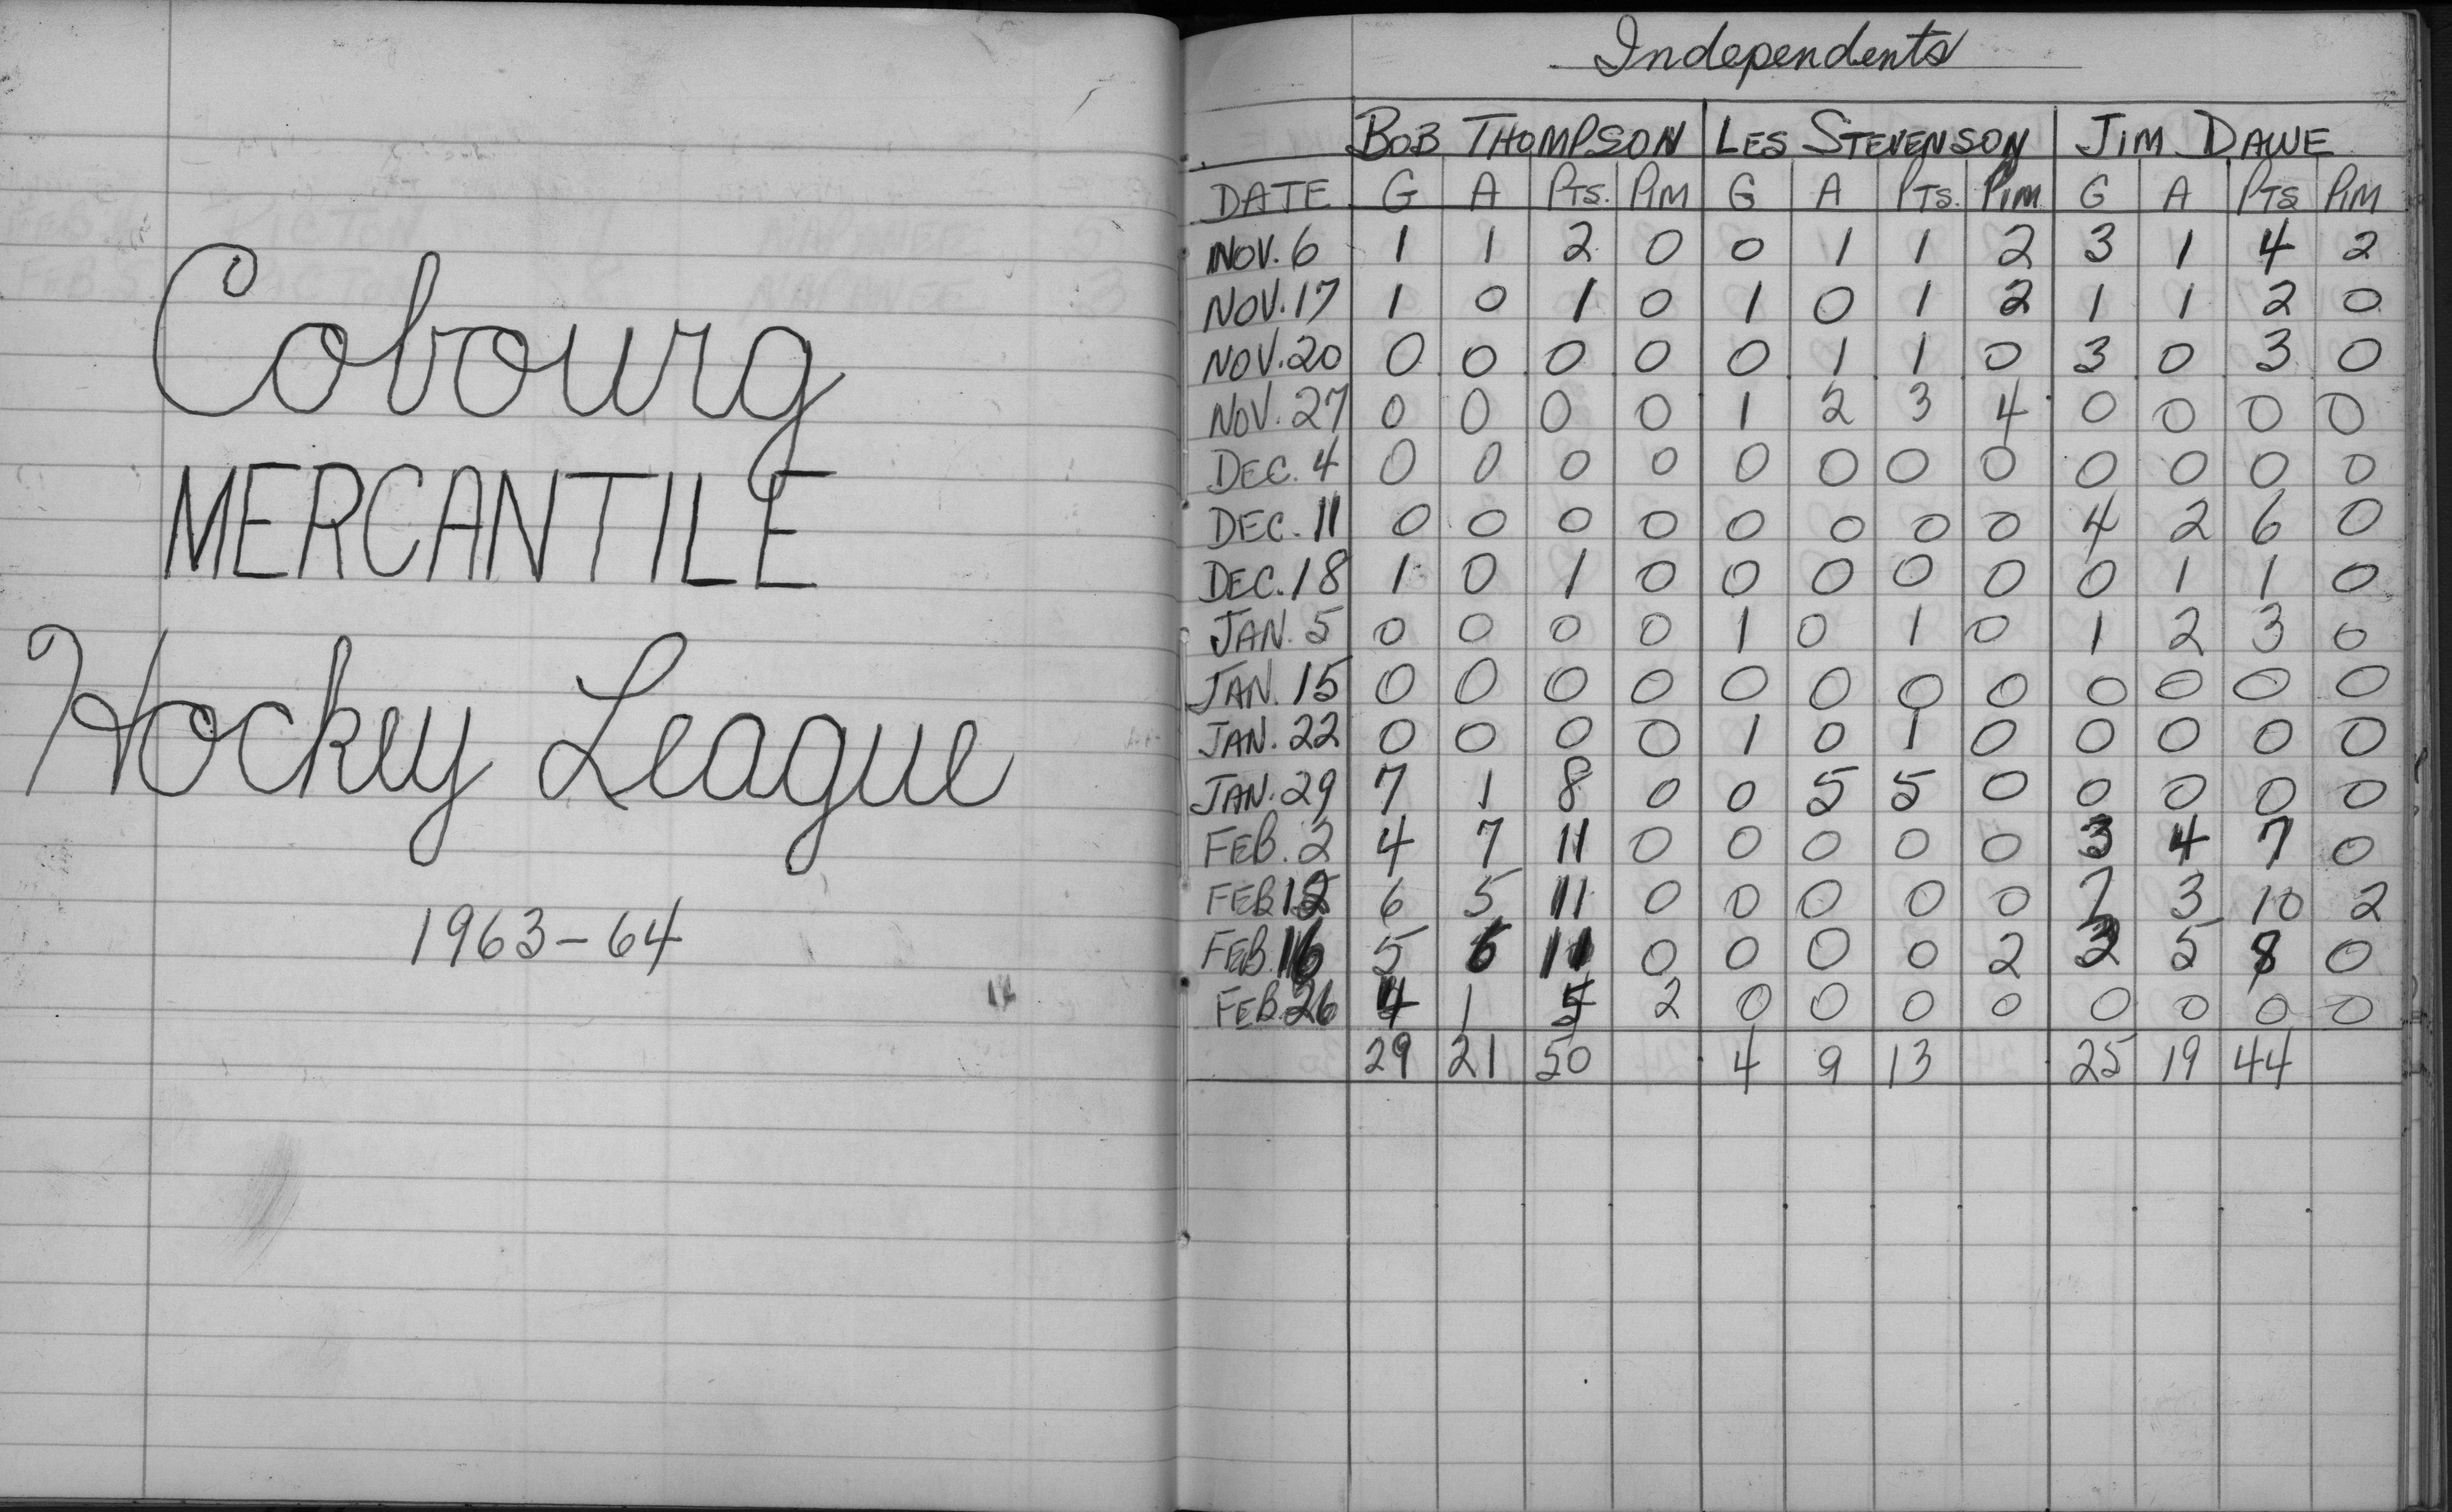 Cobourg
MERCANTILE
Hockey League
1963-64
Independents
BOB THOMPSON LES STEVENSON JIM DAWE
DATE G A PTS. PIM G A PTS. PIM G A PTS PIM
NOV. 6 1 1 2 0 0 1 1 2 3 1 4 2
NOV. 17 1 0 1 0 1 0 1 2 1 1 2 0
NOV. 20 0 0 0 0 0 1 1 0 3 0 3 0
NOV. 27 0 0 0 0 1 2 3 4 0 0 0 0
DEC. 4 0 0 0 0 0 0 0 0 0 0 0 0
DEC. 11 0 0 0 0 0 0 0 0 4 2 6 0
DEC. 18 1 0 1 0 0 0 0 0 0 1 1 0
JAN. 5 0 0 0 0 1 0 1 0 1 2 3 0
JAN. 15 0 0 0 0 0 0 0 0 0 0 0 0
JAN. 22 0 0 0 0 1 0 1 0 0 0 0 0
JAN. 29 7 1 8 0 0 5 5 0 0 0 0 0
FEB. 2 4 7 11 0 0 0 0 0 3 4 7 0
FEB 12 6 5 11 0 0 0 0 0 7 3 10 2
FEB. 16 5 6 11 0 0 0 0 2 3 5 8 0
FEB. 26 4 1 5 2 0 0 0 0 0 0 0 0
29 21 50 4 9 13 25 19 44